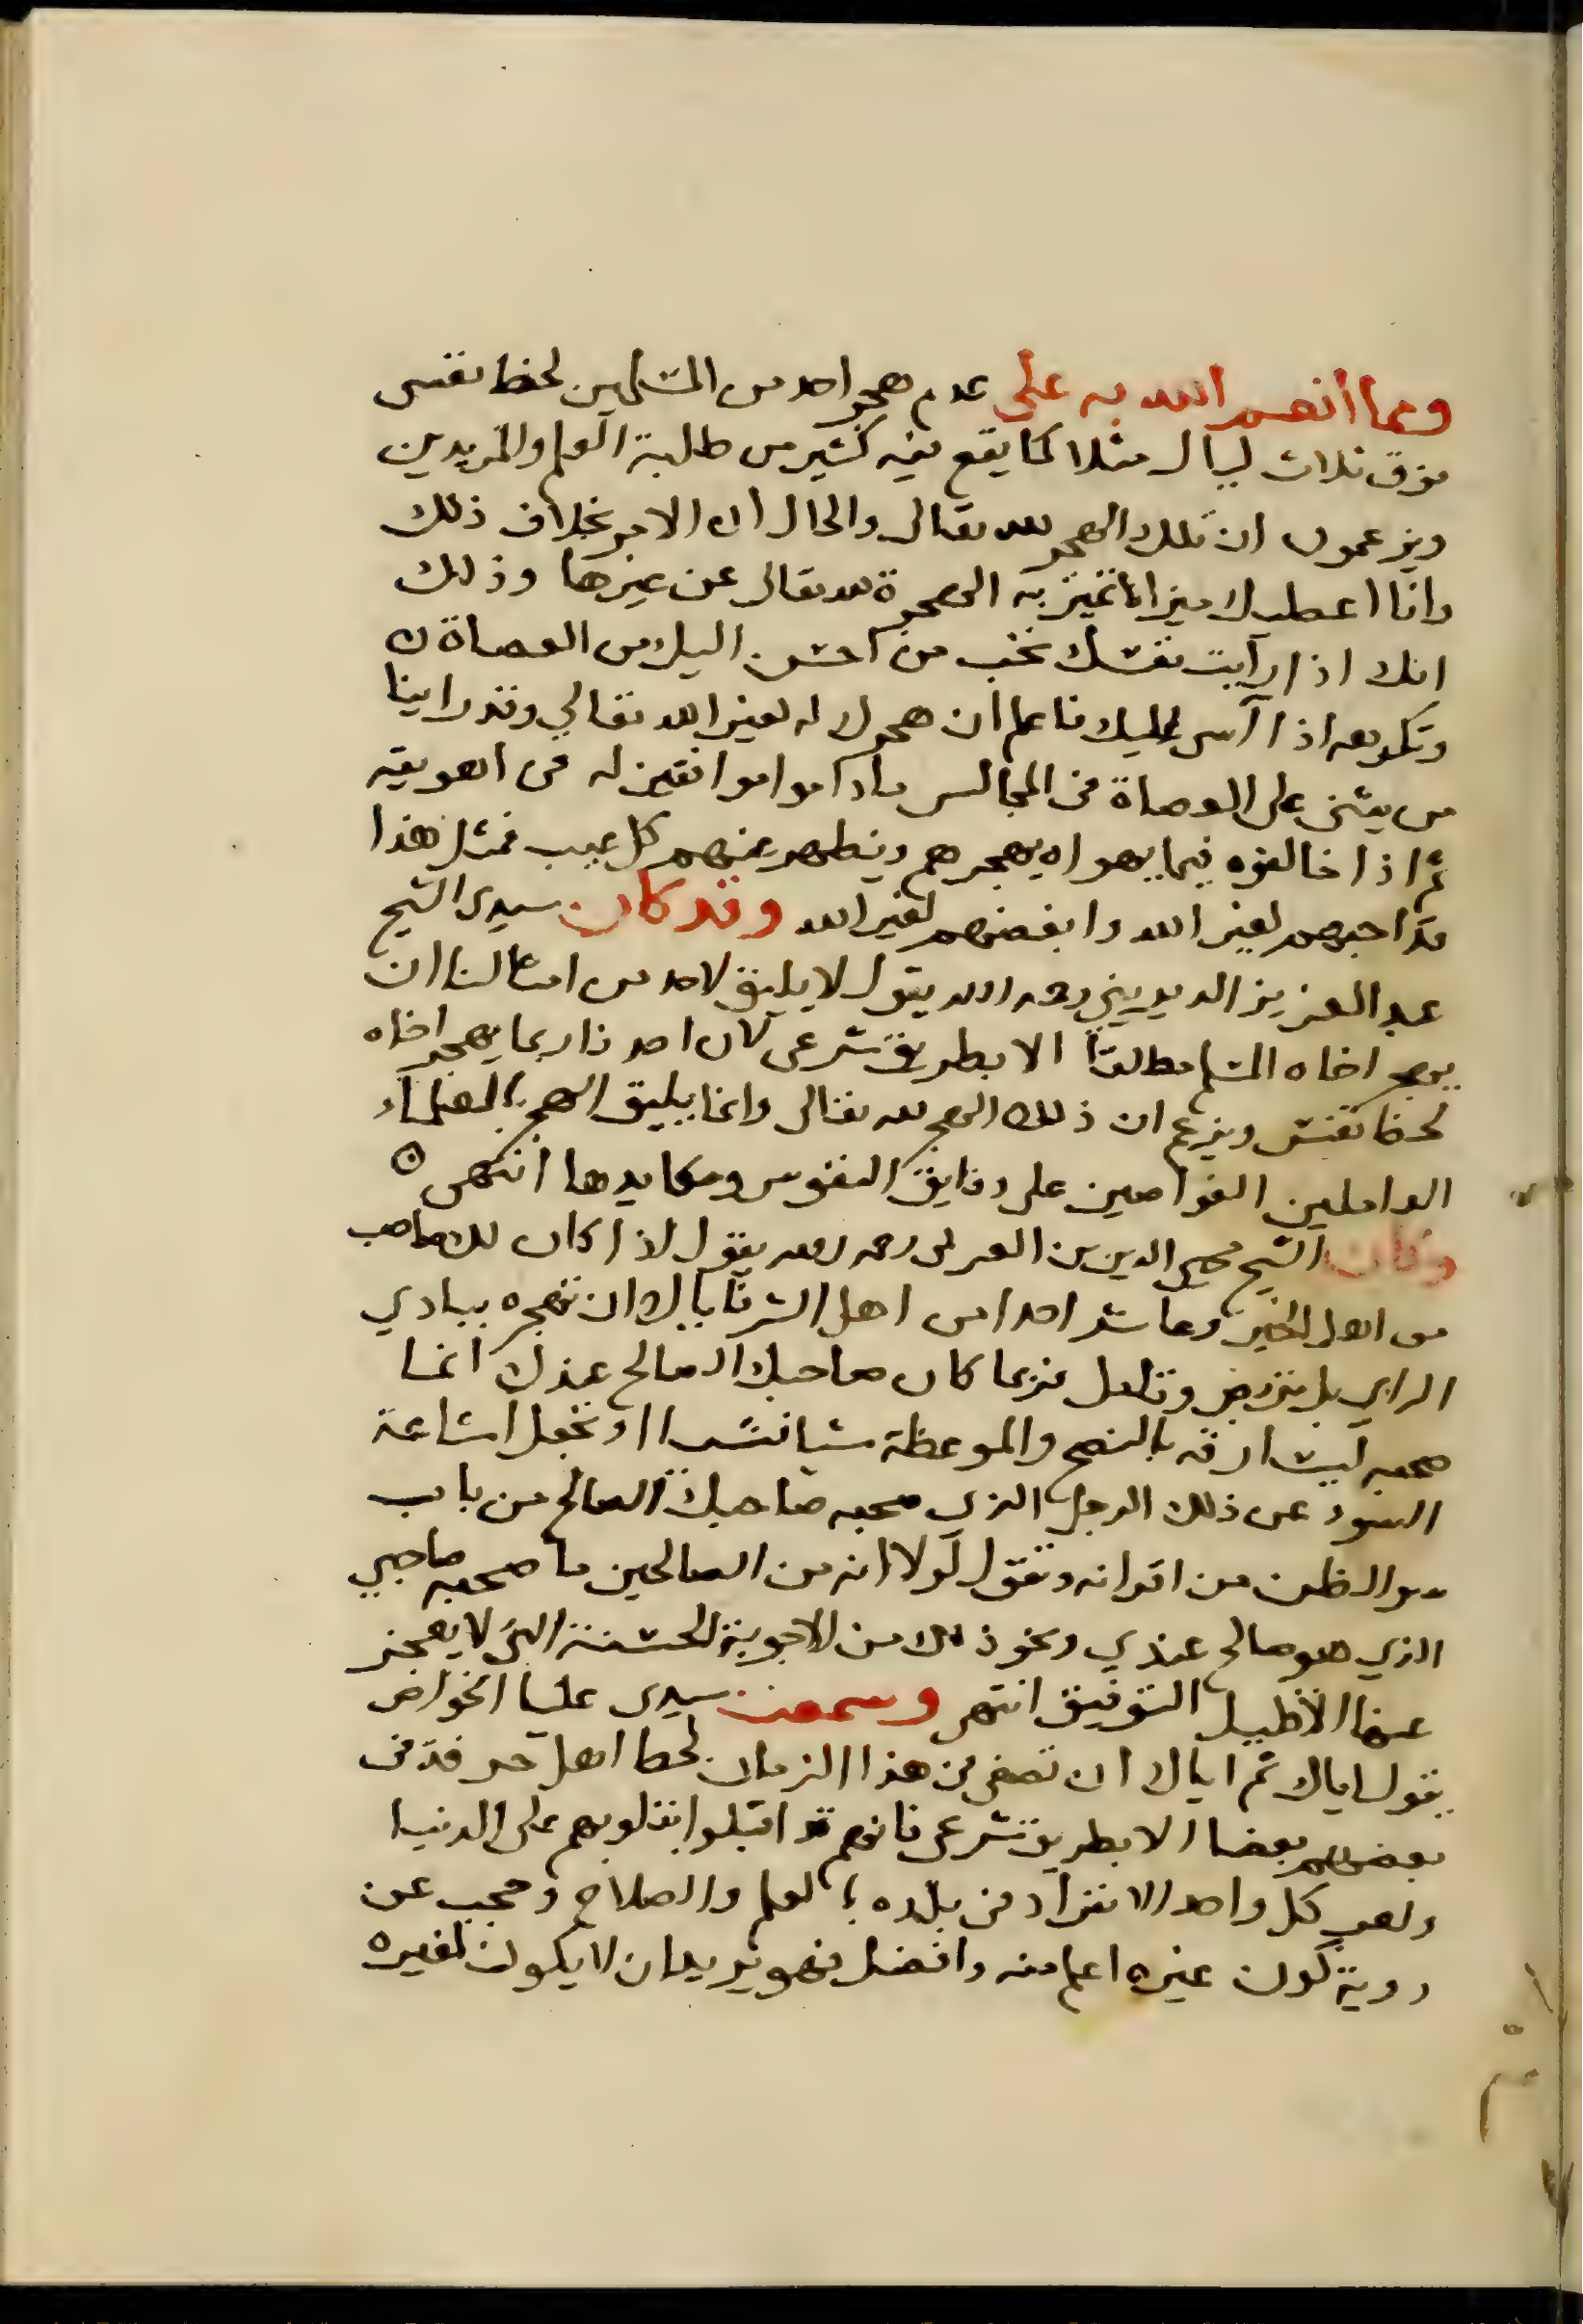 ومما انعم الله به علي عدم هجر احد من المسلمين لحظ نفسي
فوق ثلاث ليال مثلا كما يقع فيه كثير من طلبة العلم والمريدين
ويزعمون ان تلك الهجر لله تعالى والحال ان الامر بخلاف ذلك
وانا اعطيك ميزانا تميز به الهجرة لله تعالى عن غيرها وذلك
انك اذا رايت نفسك تحب من احسن اليك من العصاة
وتكرهه اذا اسى عليك فاعلم ان هجرك له لغير الله تعالي وقد راينا
من يثني على العصاة في المجالس ما داموا موافقين له في اهويته
ثم اذا خالفوه فيما يهواه يهجرهم ويظهر عنهم كل عيب فمثل هذا
قد احبهم لغير الله وابغضهم لغير الله وقد كان سيدي الشيخ
عبد العزيز الديريني رحمه الله يقول لا يليق لاحد من امثالنا ان
يهجر اخاه المسلم مطلقا الا بطريق شرعي لان احدنا ربما يهجر اخاه
لحظ نفس ويزعم ان ذلك الهجر لله تعالى وانما يليق الهجر بالعلماء
العاملين الغواصين على دقايق النفوس ومكايدها انتهى
وكان الشيخ محيي الدين بن العربي رحمه الله يقول اذا كان لك صاحب
من اهل الخير وعاشر احدا من اهل الشر فاياك ان تهجره ببادي
الراي بل تربص وتامل فربما كان صاحبك الصالح عندك انما
صحبه ليسارقه بالنصح والموعظة شيا فشيا او تجعل اشاعة
السوء عن ذلك الرجل الذي صحبه صاحبك الصالح من باب
سو الظن من اقرانه وتقول لولا انه من الصالحين ما صحبه صاحبي
الذي هو صالح عندي ونحو ذلك من الاجوبة الحسنة التي لا يعجز
عنها الا قليل التوفيق انتهى وسمعت سيدي عليا الخواص
يقول اياك ثم اياك ان تصغي في هذا الزمان لحط اهل حرفة في
بعضهم بعضا الا بطريق شرعي فانهم قد اقبلوا بقلوبهم على الدنيا
واحب كل واحد الانفراد في بلده بالعلم والصلاح وحجب عن
روية كون غيره اعلم منه وافضل فهو يريد ان لا يكون لغيره